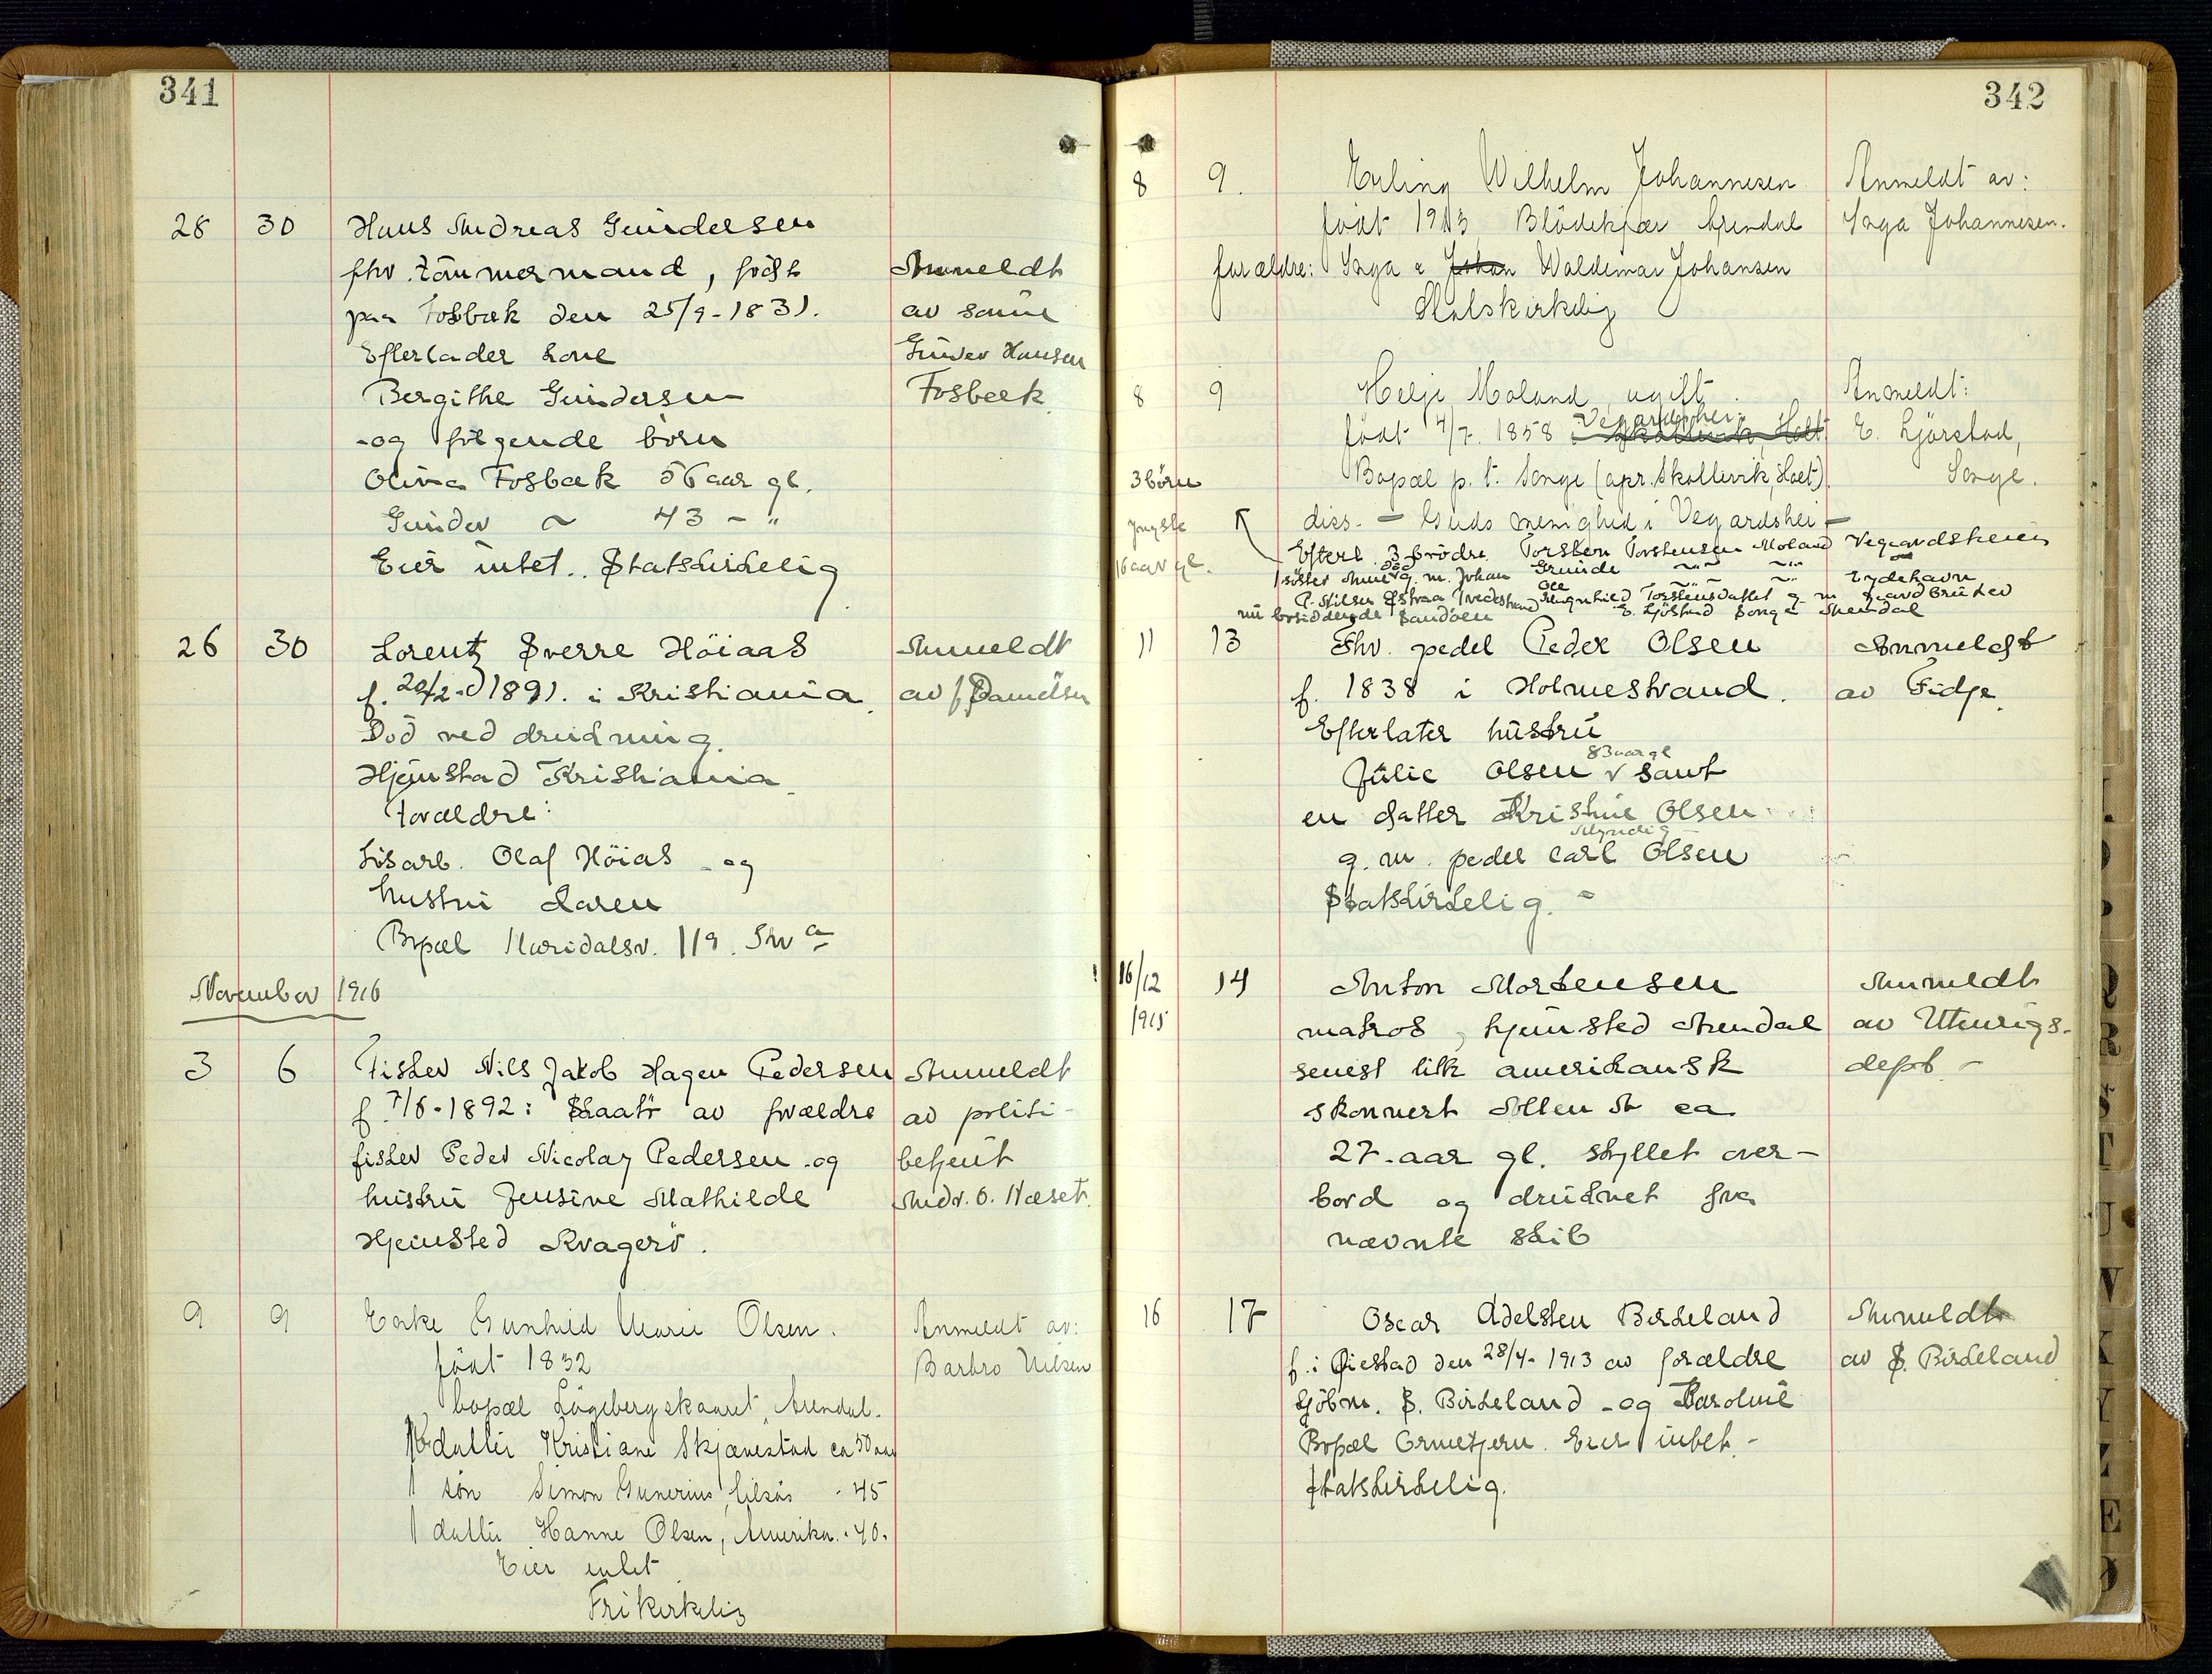 341
28 30 Hans Andreas Gundersen
fhv. tømmermand, født Anmeldt
paa Fosbæk den 25/9-1831. av sønn
Efterlader kone Gunder Hansen
Bergithe Gundersen Fosbæk
og følgende børn
Olivia Fosbæk 56 aar gl.
Gunder ~ 43 - "
Eier intet. Statskirkelig
26 30 Lorentz Sverre Höiaas Anmeldt
f. 20/2-1891. i Kristiania av f. Danielsen
Död ved drukning.
Hjemstad Kristiania
Forældre:
Løsarb. Olaf Höiås og
hustru Karen
Bopæl Maridalsv. 119. Kra
November 1916
3 6 Fisker Nils Jakob Hagen Pedersen Anmeldt
f. 7/6-1892 i Skaatø av forældre av politi-
fisker Peder Nicolay Pedersen og betjent
hustru Jensine Mathilde Andr. O. Næset.
Hjemsted Kragerö.
9 9 Enke Gunhild Marie Olsen. Anmeldt av:
født 1832 Barbro Nilsen
bopæl Lögebergskaaret, Arendal.
1 datter Kristiane Skjævestad ca 50 aar
1 søn Simon Gunerius - 45
1 datter Hanne Olsen, Amerika. - 40.
Eier intet
Frikirkelig
342
8 9. Erling Wilhelm Johannesen Anmeldt av:
født 1913 Blödekjær Arendal Saga Johannesen.
forældre: Saga & Johan Waldemar Johansen
Statskirkelig
8 9 Helje Moland, ugift. Anmeldt:
Vegardshei
født 14/7. 1858 i Skallevik, Holt E. Ljörstad,
3 børn Bopæl p. t. Songe (opr. Skallevik, Holt) Songe.
yngste diss. - Guds menighed i Vegardshei -
16 aar gl. Efterl. 3 brødre Torsten Torstensen Moland Vegardsheien
1 søster Anne g. m. Johan Grunde ~"~ ~"~ Eydehavn
død Ole ~"~ ~"~ gaardbruker
P. Nilsen Østraa Tvedestrand Ragnhild Torstensdatter g. m.
nu bosiddende Sandøen E. Ljöstad Songe Arendal
11 13 Fhv. pedel Peder Olsen Anmeldt
f. 1838 i Holmestrand. av Fidje.
Efterlater hustru
83 aar gl
Julie Olsen v samt
en datter Kristine Olsen
Myndig
g. m. pedel Carl Olsen
Statskirkelig. -
16/12 14 Anton Mortensen Anmeldt
1915 matros, hjemsted Arendal av Utenrigs-
senest tilh amerikansk dept. -
skonnert ca
27 aar gl. skyllet over-
bord og druknet fra
nævnte skib
16 17 Oscar Adelsten Birkeland Anmeldt
f. i Øiestad den 28/4-1913 av forældre av S. Birkeland
sjöm. S. Birkeland og Karoline
Bopæl Ormetjern. Eier intet -
Statskirkelig.